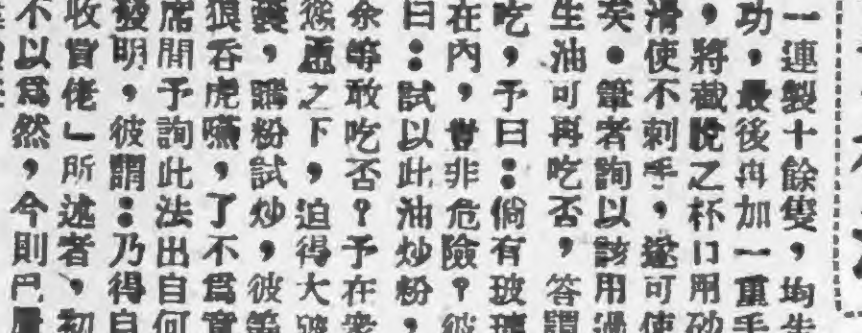 一連製十餘隻，均告
功，最後再加一重手
，將截脫之杯口用砂
滑使不刺手，遂可使
矣。筆者詢以該用過
生油可再吃否，答謂
吃，予曰：倘有玻璃
在內，豈非危險？彼
曰：試以此油炒粉，
余等敢吃否？予在衆
慫恿之下，迫得大
襄，購粉試炒，彼等
狼吞虎嚥，了不爲意
席間予詢此法出自何
發明，彼謂：乃得自
收買佬」所述者，初
不以爲然，今則已